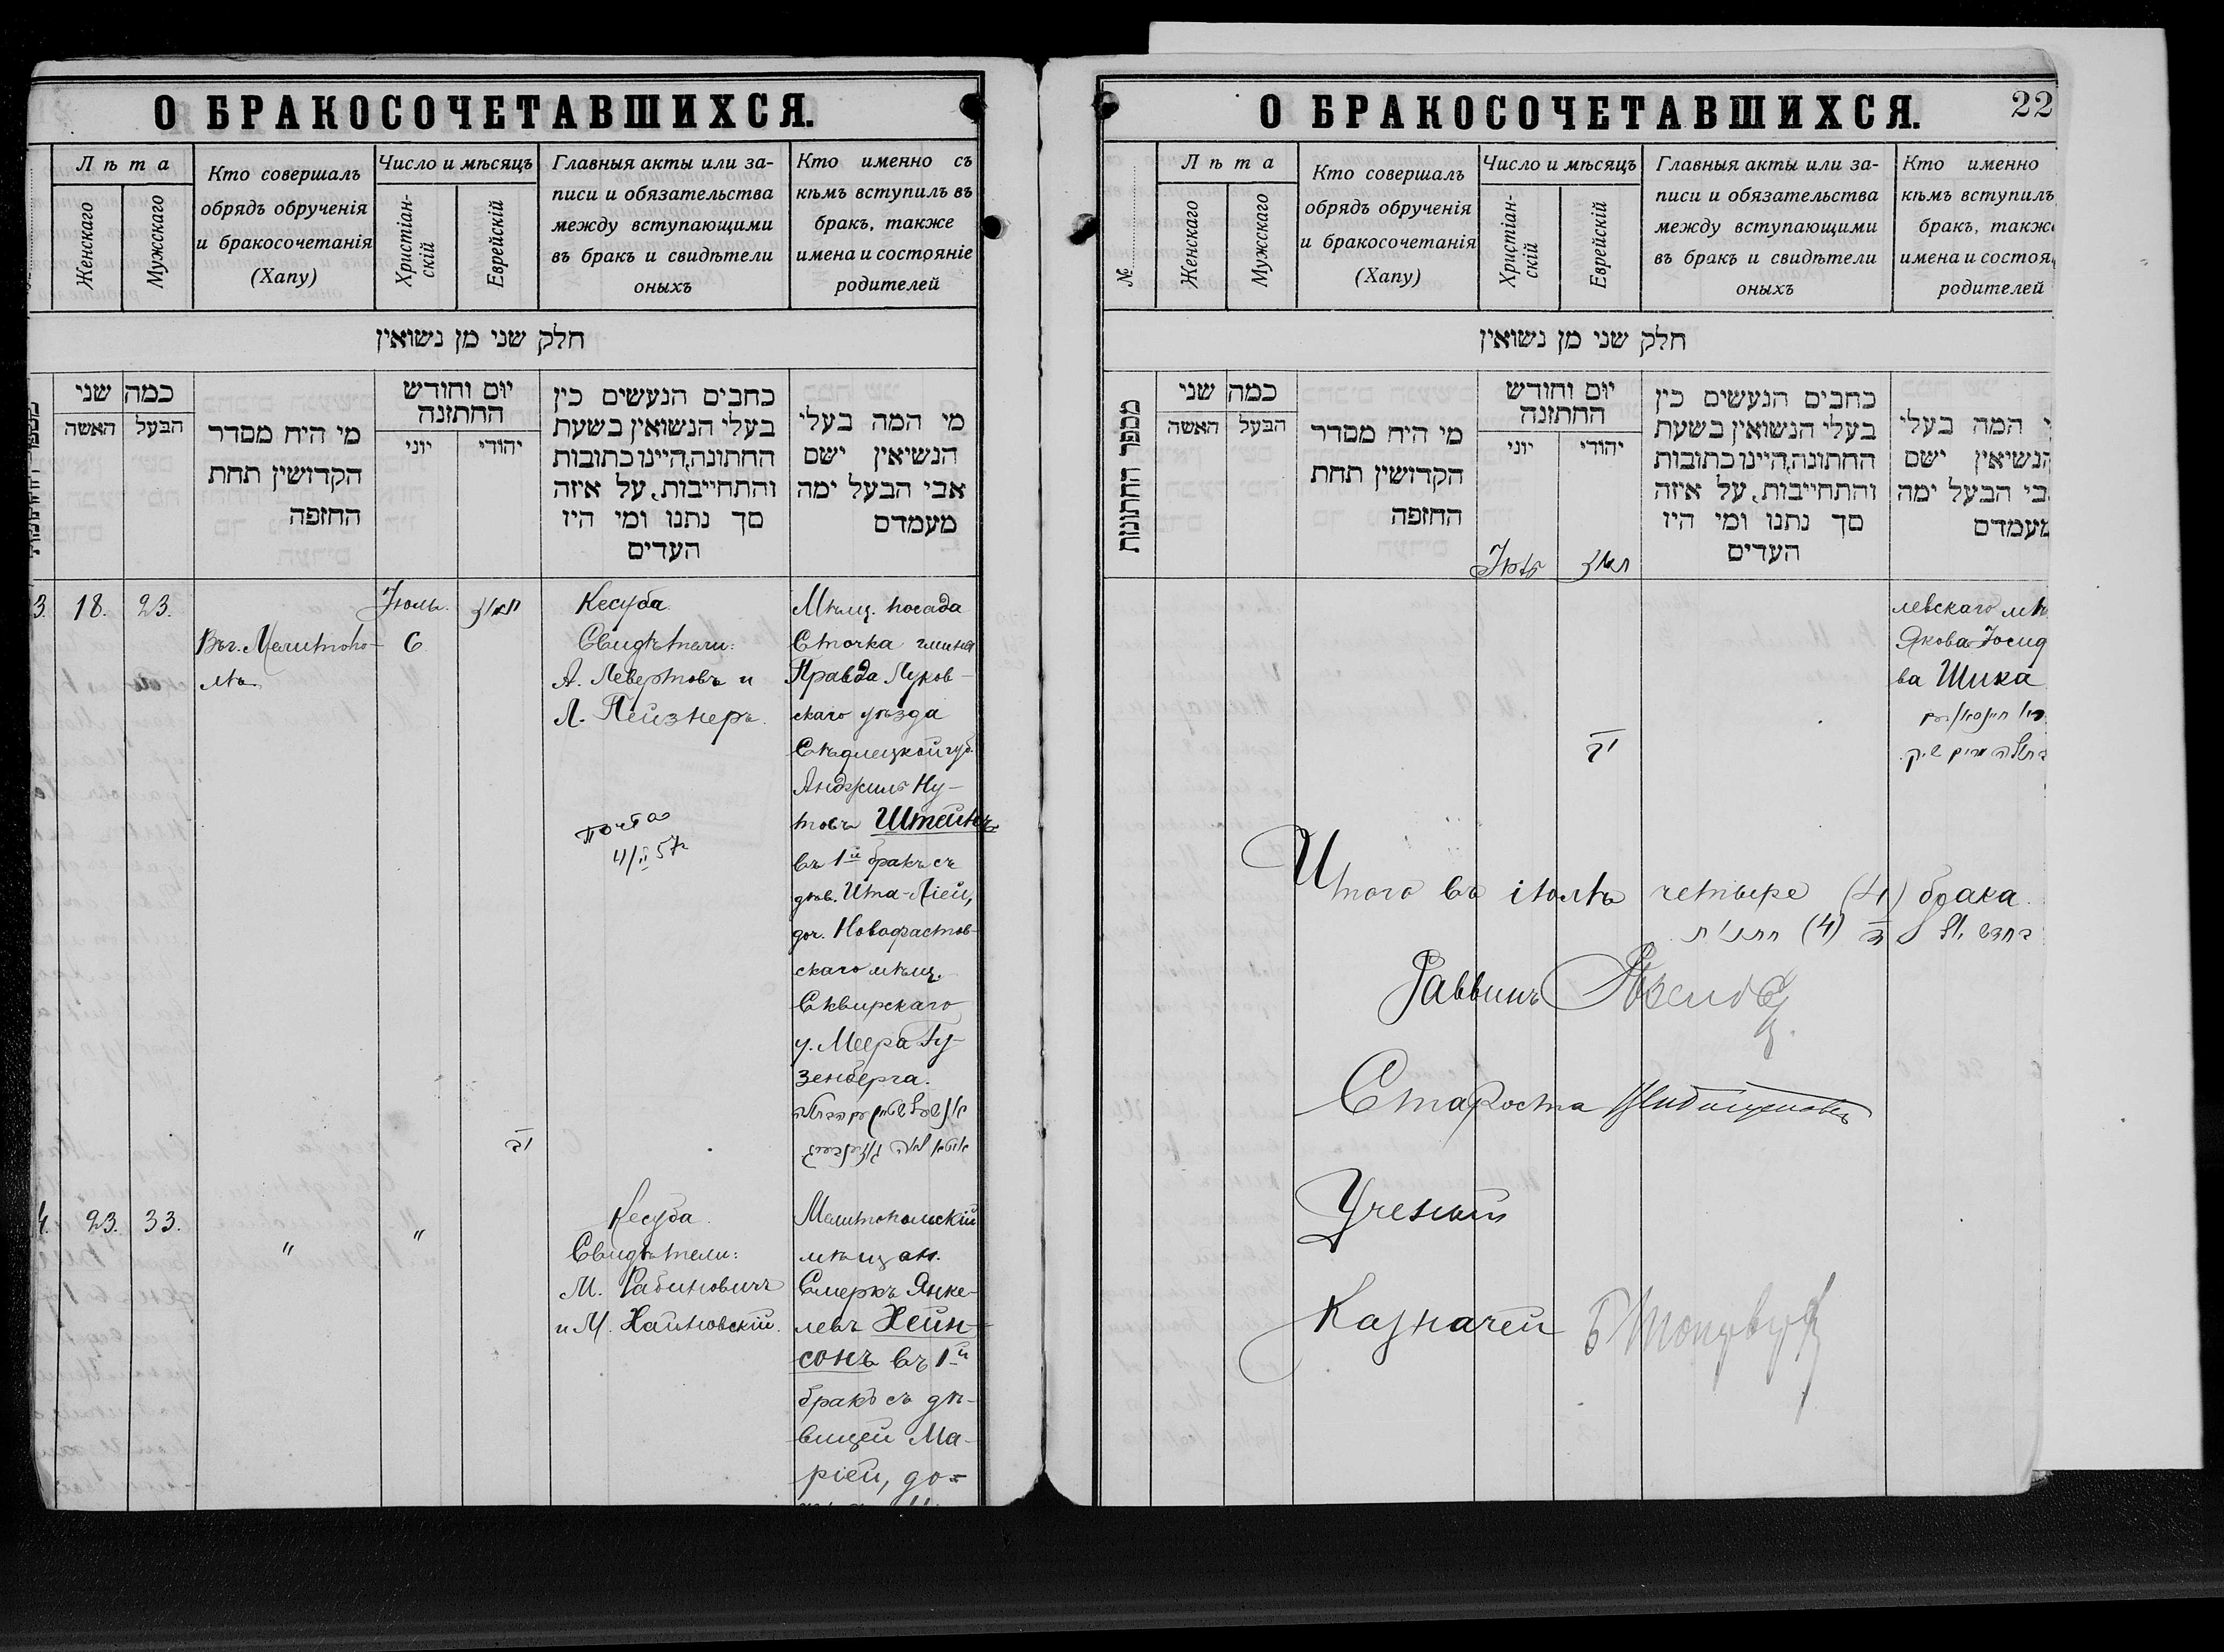 О БРАКОСОЧЕТАВШИХСЯ.
Лѣта
Женскаго
Мужскаго
Кто совершалъ
обрядъ обрученія
и бракосочетанія
(Хапу)
Число и мѣсяцъ
Христіан-
скій
Еврейскій
Главныя акты или за-
писи и обязательства
между вступающими
въ бракъ и свидѣтели
оныхъ
Кто именно съ
кѣмъ вступилъ въ
бракъ, также
имена и состояніе
родителей
חלק שני מן נשואין
כמה שני
האשה
הבעל
מי היח מסדר
הקדושין תחת
החופה
יום וחודש
החתונה
יוני
יהודי
כתבים הנעשים בין
בעלי הנשואין בשעת
החתונה, היינו כתובות
והתחייבות, על איזה
סך נתנו ומי היו
העדים
מי המה בעלי
הנשיאין ישם
אבי הבעל ימה
מעמדם
3. 18. 23.
Въ г. Мелитопо-
лѣ
Іюль.
6
תמוז
יב
Кесуба.
Свидѣтели:
А. Левертовъ и
Л. Пейзнеръ.
почта
4/II 57г
Мѣщ. посада
Сточка гмины
Правда Луков-
скаго уѣзда
Сѣдлецкой губ.
Анджиль Ну-
товъ Штейнъ
въ 1й бракъ съ
дѣв. Ита-Лией,
доч. Новофастов-
скаго мѣщ.
Сквирскаго
у. Меера Гу-
зенберга.
4. 23. 33.
"
"
Кесуба.
Свидѣтели:
М. Рабиновичъ
и М. Хайновскій.
Мелитопольскій
мѣщан.
Смеркъ Янке-
левъ Хейн-
сонъ въ 1й
бракъ съ дѣ-
вицей Ма-
ріей, до-
О БРАКОСОЧЕТАВШИХСЯ.
22
№
Лѣта
Женскаго
Мужскаго
Кто совершалъ
обрядъ обрученія
и бракосочетанія
(Хапу)
Число и мѣсяцъ
Христіан-
скій
Еврейскій
Главныя акты или за-
писи и обязательства
между вступающими
въ бракъ и свидѣтели
оныхъ
Кто именно
кѣмъ вступилъ
бракъ, также
имена и состоя
родителей
חלק שני מן נשואין
מספר החתונות
כמה שני
האשה
הבעל
מי היח מסדר
הקדושין תחת
החופה
יום וחודש
החתונה
יוני
יהודי
כתבים הנעשים בין
בעלי הנשואין בשעת
החתונה, היינו כתובות
והתחייבות, על איזה
סך נתנו ומי היו
העדים
המה בעלי
הנשיאין ישם
בי הבעל ימה
מעמדם
Іюль
תמוז
יב
левскаго мѣ
Якова Іосид
ва Шика
Итого въ іюлѣ четыре (4) брака.
Раввинъ
Староста
Ученый
Казначей